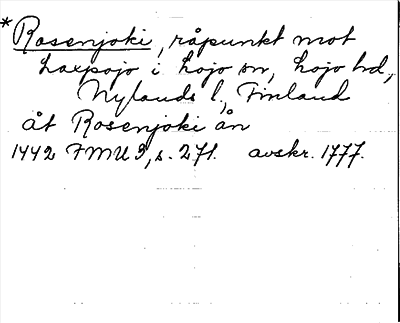 *Rosenjoki, råpunkt mot
Laxpojo i Lojo sn, Lojo hd,
Nylands l, Finland
åt Rosenjoki ån
1442 FMU 3, s. 271. avskr. 1777.